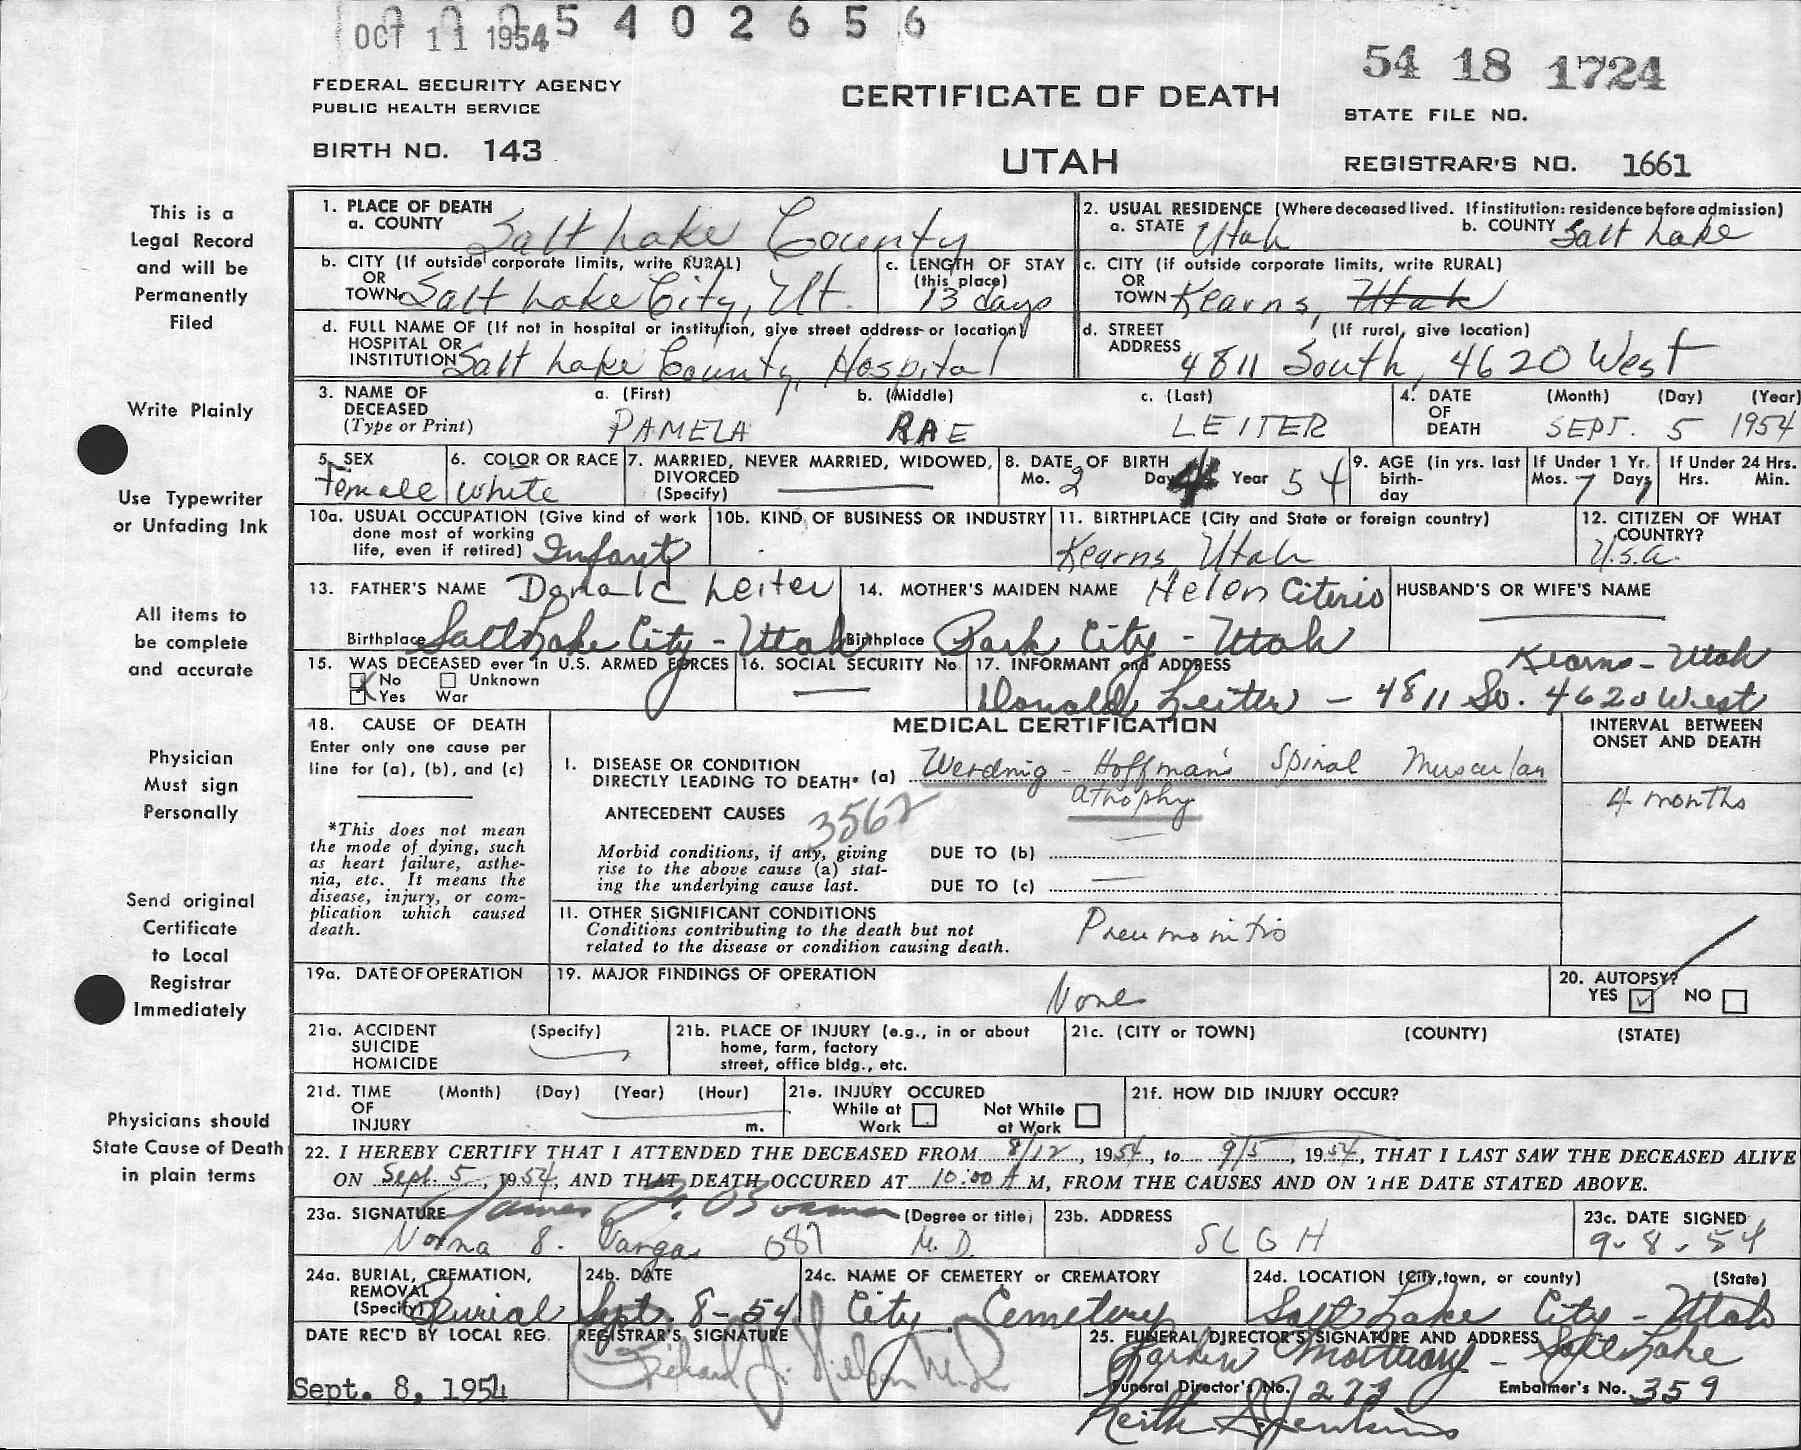 OCT 11 1954 5 4 0 2 6 5 6
54 18 1724
FEDERAL SECURITY AGENCY
PUBLIC HEALTH SERVICE
CERTIFICATE OF DEATH
STATE FILE NO.
BIRTH NO. 143
UTAH
REGISTRAR'S NO. 1661
This is a
Legal Record
and will be
Permanently
Filed
Write Plainly
Use Typewriter
or Unfading Ink
All items to
be complete
and accurate
Physician
Must sign
Personally
Send original
Certificate
to Local
Registrar
Immediately
Physicians should
State Cause of Death
in plain terms
1. PLACE OF DEATH
a. COUNTY Salt Lake County
2. USUAL RESIDENCE (Where deceased lived. If institution: residence before admission)
a. STATE Utah b. COUNTY Salt Lake
b. CITY (If outside corporate limits, write RURAL)
OR
TOWN Salt Lake City, Ut.
c. LENGTH OF STAY
(this place)
13 days
c. CITY (if outside corporate limits, write RURAL)
OR
TOWN Kearns, Utah
d. FULL NAME OF (If not in hospital or institution, give street address or location)
HOSPITAL OR
INSTITUTION Salt Lake County Hospital
d. STREET (If rural, give location)
ADDRESS 4811 South, 4620 West
3. NAME OF a. (First) b. (Middle) c. (Last)
DECEASED
(Type or Print) PAMELA RAE LEITER
4. DATE (Month) (Day) (Year)
OF
DEATH SEPT. 5 1954
5. SEX
Female
6. COLOR OR RACE
White
7. MARRIED, NEVER MARRIED, WIDOWED,
DIVORCED
(Specify)
8. DATE OF BIRTH
Mo. 2 Day 4 Year 54
9. AGE (in yrs. last
birth-
day
If Under 1 Yr.
Mos. 7 Days 1
If Under 24 Hrs.
Hrs. Min.
10a. USUAL OCCUPATION (Give kind of work
done most of working
life, even if retired) Infant
10b. KIND OF BUSINESS OR INDUSTRY
11. BIRTHPLACE (City and State or foreign country)
Kearns Utah
12. CITIZEN OF WHAT
COUNTRY?
U.S.a.
13. FATHER'S NAME Donald Leiter
Birthplace Salt Lake City - Utah
14. MOTHER'S MAIDEN NAME Helen Citerio
Birthplace Park City - Utah
HUSBAND'S OR WIFE'S NAME
15. WAS DECEASED ever in U.S. ARMED FORCES
No Unknown
Yes War
16. SOCIAL SECURITY No.
17. INFORMANT and ADDRESS Kearns - Utah
Donald Leiter - 4811 So. 4620 West
18. CAUSE OF DEATH
Enter only one cause per
line for (a), (b), and (c)
*This does not mean
the mode of dying, such
as heart failure, asthe-
nia, etc. It means the
disease, injury, or com-
plication which caused
death.
MEDICAL CERTIFICATION
INTERVAL BETWEEN
ONSET AND DEATH
I. DISEASE OR CONDITION
DIRECTLY LEADING TO DEATH* (a) Werdnig - Hoffman's Spinal Muscular
atrophy
4 months
ANTECEDENT CAUSES 3562
Morbid conditions, if any, giving
rise to the above cause (a) stat-
ing the underlying cause last.
DUE TO (b)
DUE TO (c)
II. OTHER SIGNIFICANT CONDITIONS
Conditions contributing to the death but not
related to the disease or condition causing death.
Pneumonitis
19a. DATE OF OPERATION
19. MAJOR FINDINGS OF OPERATION
None
20. AUTOPSY?
YES NO
21a. ACCIDENT (Specify)
SUICIDE
HOMICIDE
21b. PLACE OF INJURY (e.g., in or about
home, farm, factory
street, office bldg., etc.
21c. (CITY or TOWN) (COUNTY) (STATE)
21d. TIME (Month) (Day) (Year) (Hour)
OF
INJURY m.
21e. INJURY OCCURED
While at Work Not While at Work
21f. HOW DID INJURY OCCUR?
22. I HEREBY CERTIFY THAT I ATTENDED THE DECEASED FROM 8/12, 1954, to 9/5, 1954, THAT I LAST SAW THE DECEASED ALIVE
ON Sept. 5, 1954, AND THAT DEATH OCCURED AT 10:00 A M, FROM THE CAUSES AND ON THE DATE STATED ABOVE.
23a. SIGNATURE James (Degree or title)
Norma Vargas 087 M.D.
23b. ADDRESS
SLGH
23c. DATE SIGNED
9-8-54
24a. BURIAL, CREMATION,
REMOVAL
(Specify) Burial
24b. DATE
Sept. 8-54
24c. NAME OF CEMETERY or CREMATORY
City Cemetery
24d. LOCATION (City, town, or county) (State)
Salt Lake City - Utah
DATE REC'D BY LOCAL REG.
Sept. 8, 1954
REGISTRAR'S SIGNATURE
Richard J. Nielson M.D.
25. FUNERAL DIRECTOR'S SIGNATURE AND ADDRESS
Larkin Mortuary - Salt Lake
Funeral Director's No. 277 Embalmer's No. 359
Keith S. Jenkins